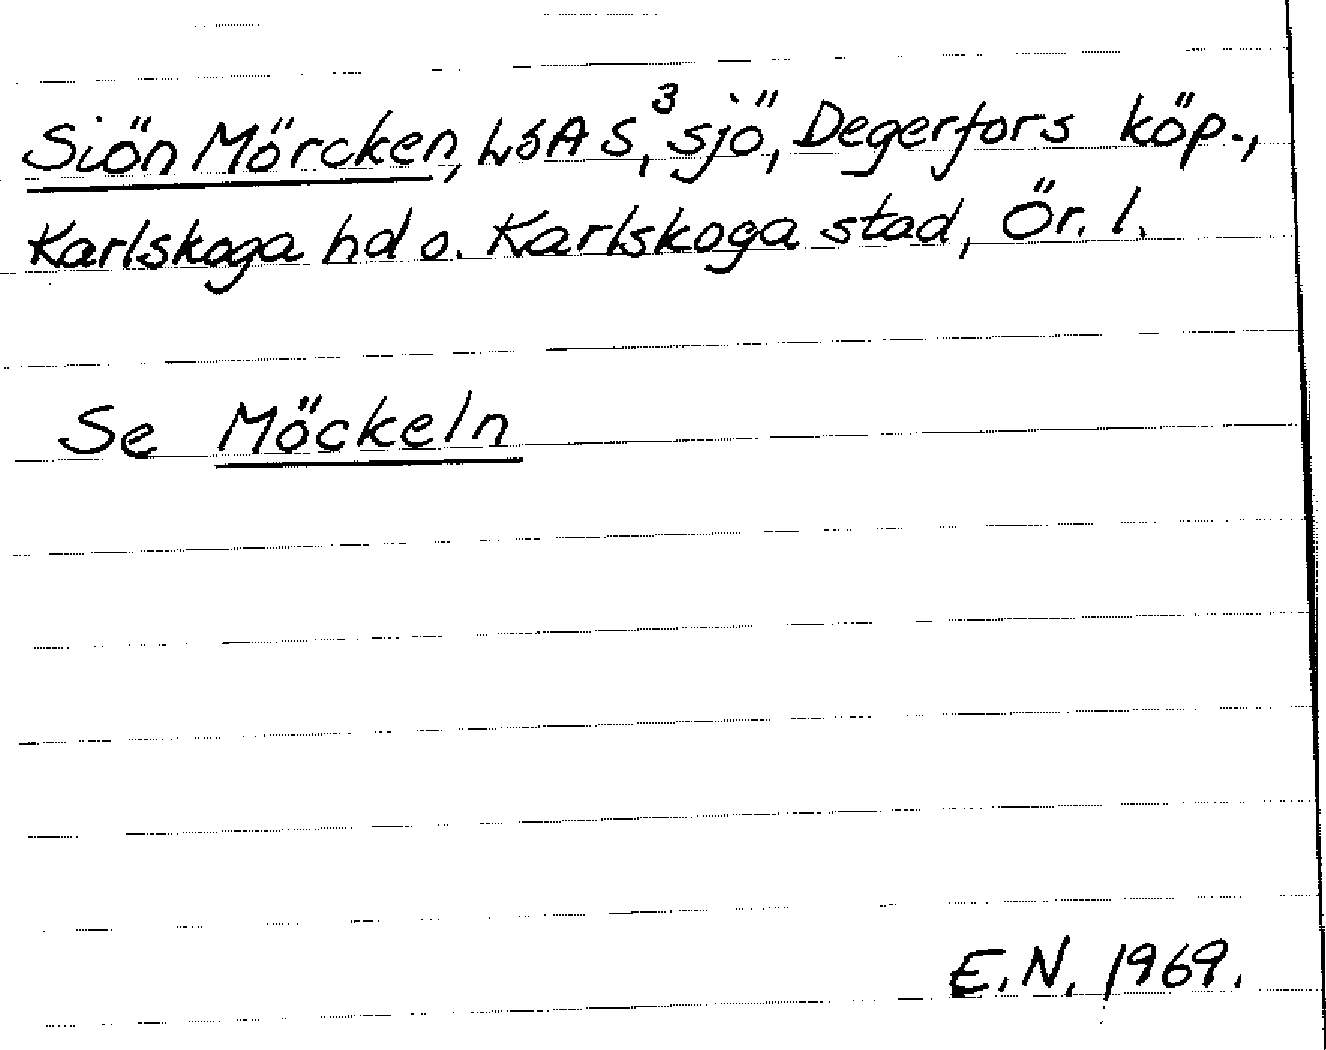 Siön Mörcken, LSA S³, sjö, Degerfors köp.,
Karlskoga hd o. Karlskoga stad, Ör. l.
Se Möckeln
E.N. 1969.